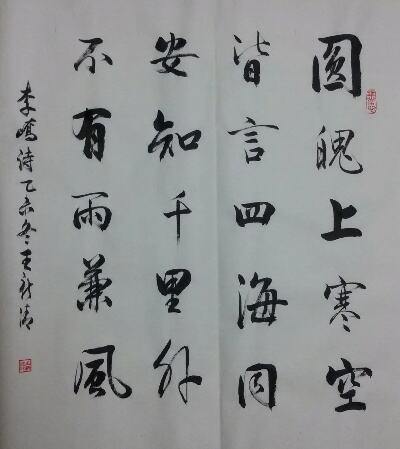 圆魄上寒空
皆言四海同
安知千里外
不有雨兼风
李峤诗乙未冬王新清